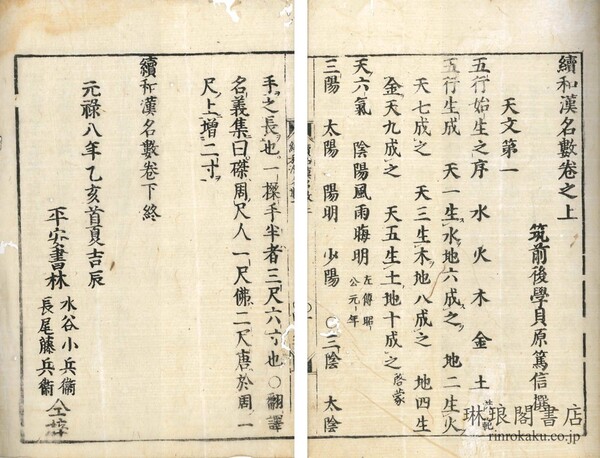 續和漢名數卷之上
筑前後學貝原篤信撰
天文第一
五行始生之序 水 火 木 金 土 洪範
五行生成 天一生水地六成之 地二生火
天七成之 天三生木地八成之 地四生
金天九成之 天五生土地十成之 啓蒙
天六氣 陰陽風雨晦明 左傳昭公元年
三陽 太陽 陽明 少陽 ○三陰 太陰
手之長也一搩手半者三尺六寸也○翻譯
名義集曰磔周尺人一尺佛二尺唐於周一
尺上增二寸
續和漢名數卷下終
元祿八年乙亥首夏吉辰
平安書林 水谷小兵衞
長尾藤兵衞 仝梓
琳琅閣書店
rinrokaku.co.jp